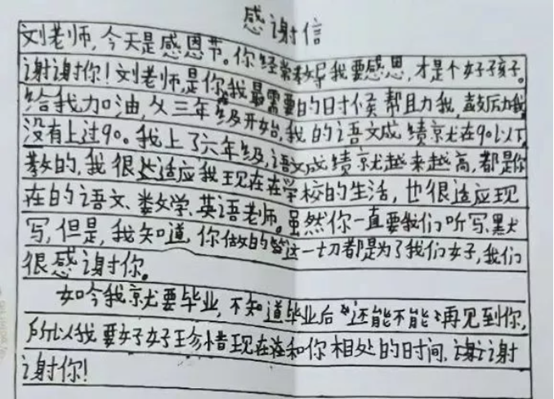 感谢信
刘老师，今天是感恩节。你经常教导我要感恩，才是个好孩子。
谢谢你！刘老师，是你，我最需要的的时候帮助我，鼓励我，
给我加油，从三年级开始，我的语文成绩就在90以下，
没有上过90。我上了六年级，语文成绩就越来越高，都是你
教的，我很适应我现在在学校的生活，也很适应现
在的语文、数学、英语老师。虽然你一直要我们听写、默
写，但是，我知道，你做的这一切都是为了我们好，我们
很感谢你。
如今我就要毕业，不知道毕业后“还能不能”再见到你，
所以我要好好珍惜现在和你相处的时间，谢谢
谢你！